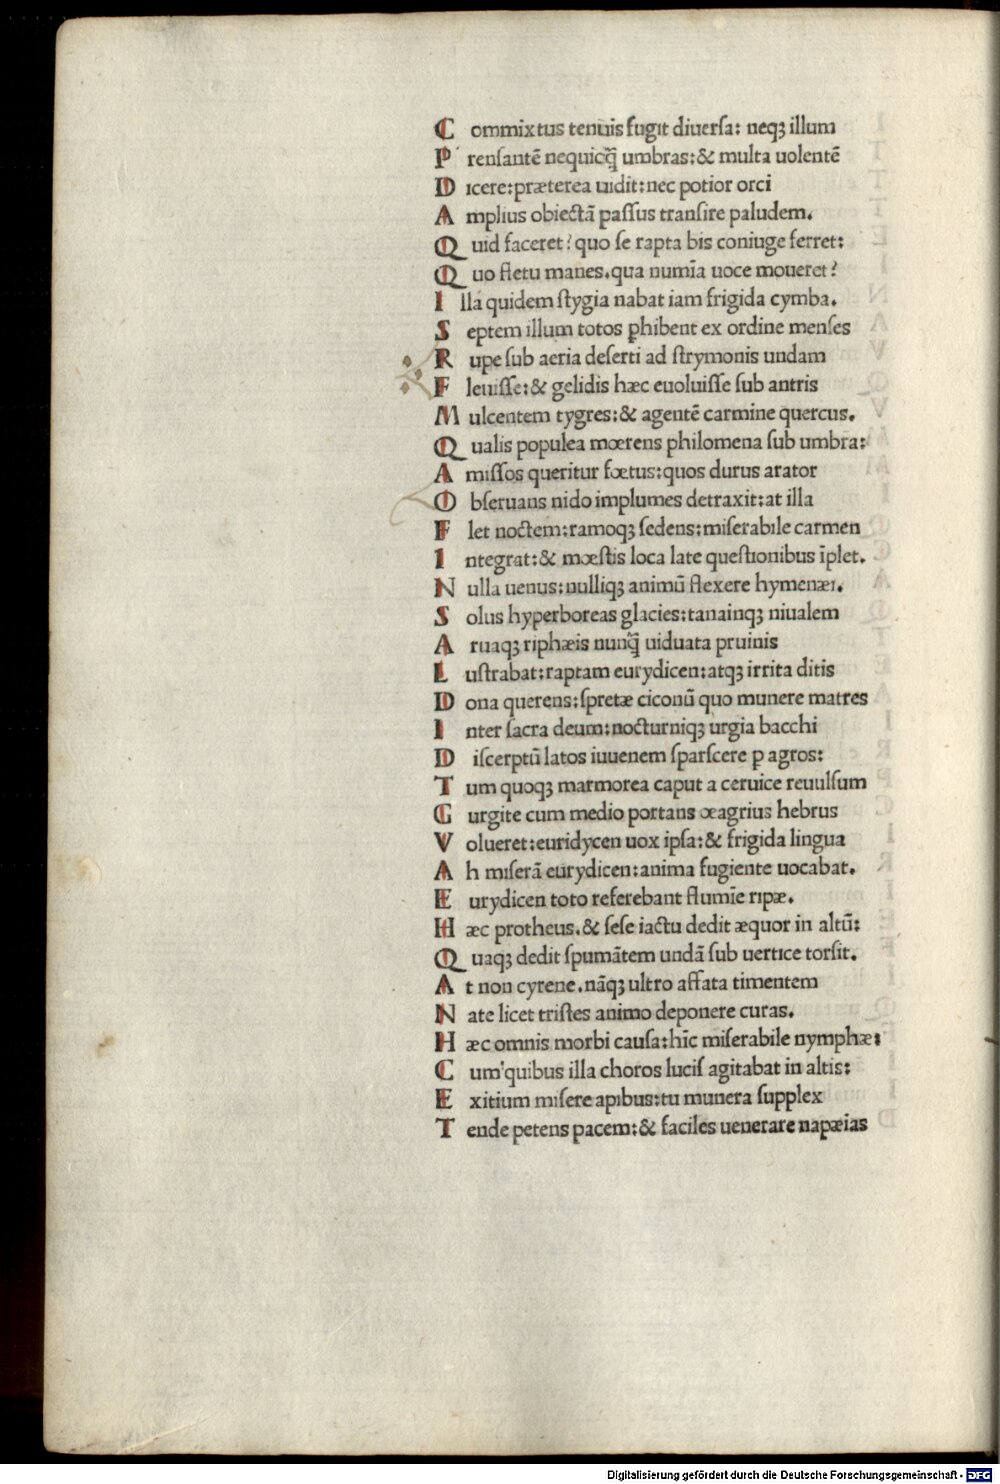 C ommixtus tenuis fugit diuersa: neqꝫ illum
P rensantē nequicq̄ umbras:& multa uolentē
D icere:præterea uidit:nec potior orci
A mplius obiectā passus transire paludem.
Q uid faceret? quo se rapta bis coniuge ferret:
Q uo fletu manes.qua numīa uoce moueret?
I lla quidem stygia nabat iam frigida cymba.
S eptem illum totos ꝑhibent ex ordine menses
R upe sub aeria deserti ad strymonis undam
F leuisse:& gelidis hæc euoluisse sub antris
M ulcentem tygres:& agentē carmine quercus.
Q ualis populea mœrens philomena sub umbra:
A missos queritur fœtus:quos durus arator
O bseruans nido implumes detraxit:at illa
F let noctem:ramoqꝫ sedens:miserabile carmen
I ntegrat:& mœstis loca late questionibus īplet.
N ulla uenus:nulliqꝫ animū flexere hymenæi.
S olus hyperboreas glacies:tanainqꝫ niualem
A ruaqꝫ riphæis nunq̄ uiduata pruinis
L ustrabat:raptam eurydicen:atqꝫ irrita ditis
D ona querens:spretæ ciconū quo munere matres
I nter sacra deum:nocturniqꝫ urgia bacchi
D iscerptū latos iuuenem sparscere ꝑ agros:
T um quoqꝫ marmorea caput a ceruice reuulsum
G urgite cum medio portans œagrius hebrus
V olueret:euridycen uox ipsa:& frigida lingua
A h miserā eurydicen:anima fugiente uocabat.
E urydicen toto referebant flumīe ripæ.
H æc protheus.& sese iactu dedit æquor in altū:
Q uaqꝫ dedit spumātem undā sub uertice torsit.
A t non cyrene.nāqꝫ ultro affata timentem
N ate licet tristes animo deponere curas.
H æc omnis morbi causa:hīc miserabile nymphæ:
C um quibus illa choros lucis agitabat in altis:
E xitium misere apibus:tu munera supplex
T ende petens pacem:& faciles uenerare napæias
Digitalisierung gefördert durch die Deutsche Forschungsgemeinschaft - DFG